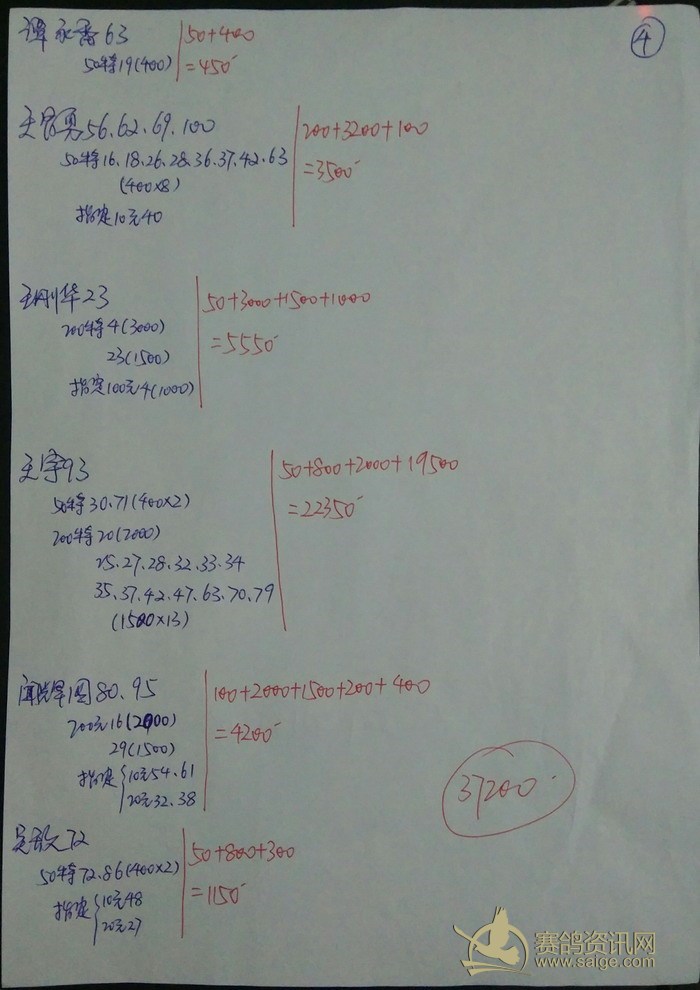 ④
谭永香63
50特19(400)
50+400
=450
56.62.69.100
50特16.18.26.28.36.37.42.63
(400×8)
指定10元40
200+3200+100
=3500
王刚华23
200特4(3000)
23(1500)
指定100元4(1000)
50+3000+1500+1000
=5550
王宇93
50特30.71(400×2)
200特20(2000)
25.27.28.32.33.34
35.37.42.47.63.70.79
(1500×13)
50+800+2000+19500
=22350
80.95
200元16(2000)
29(1500)
指定{10元54.61
20元32.38
100+2000+1500+200+400
=4200
吴敌72
50特72.86(400×2)
指定{10元48
20元27
50+800+300
=1150
37200
赛鸽资讯网
www.saige.com